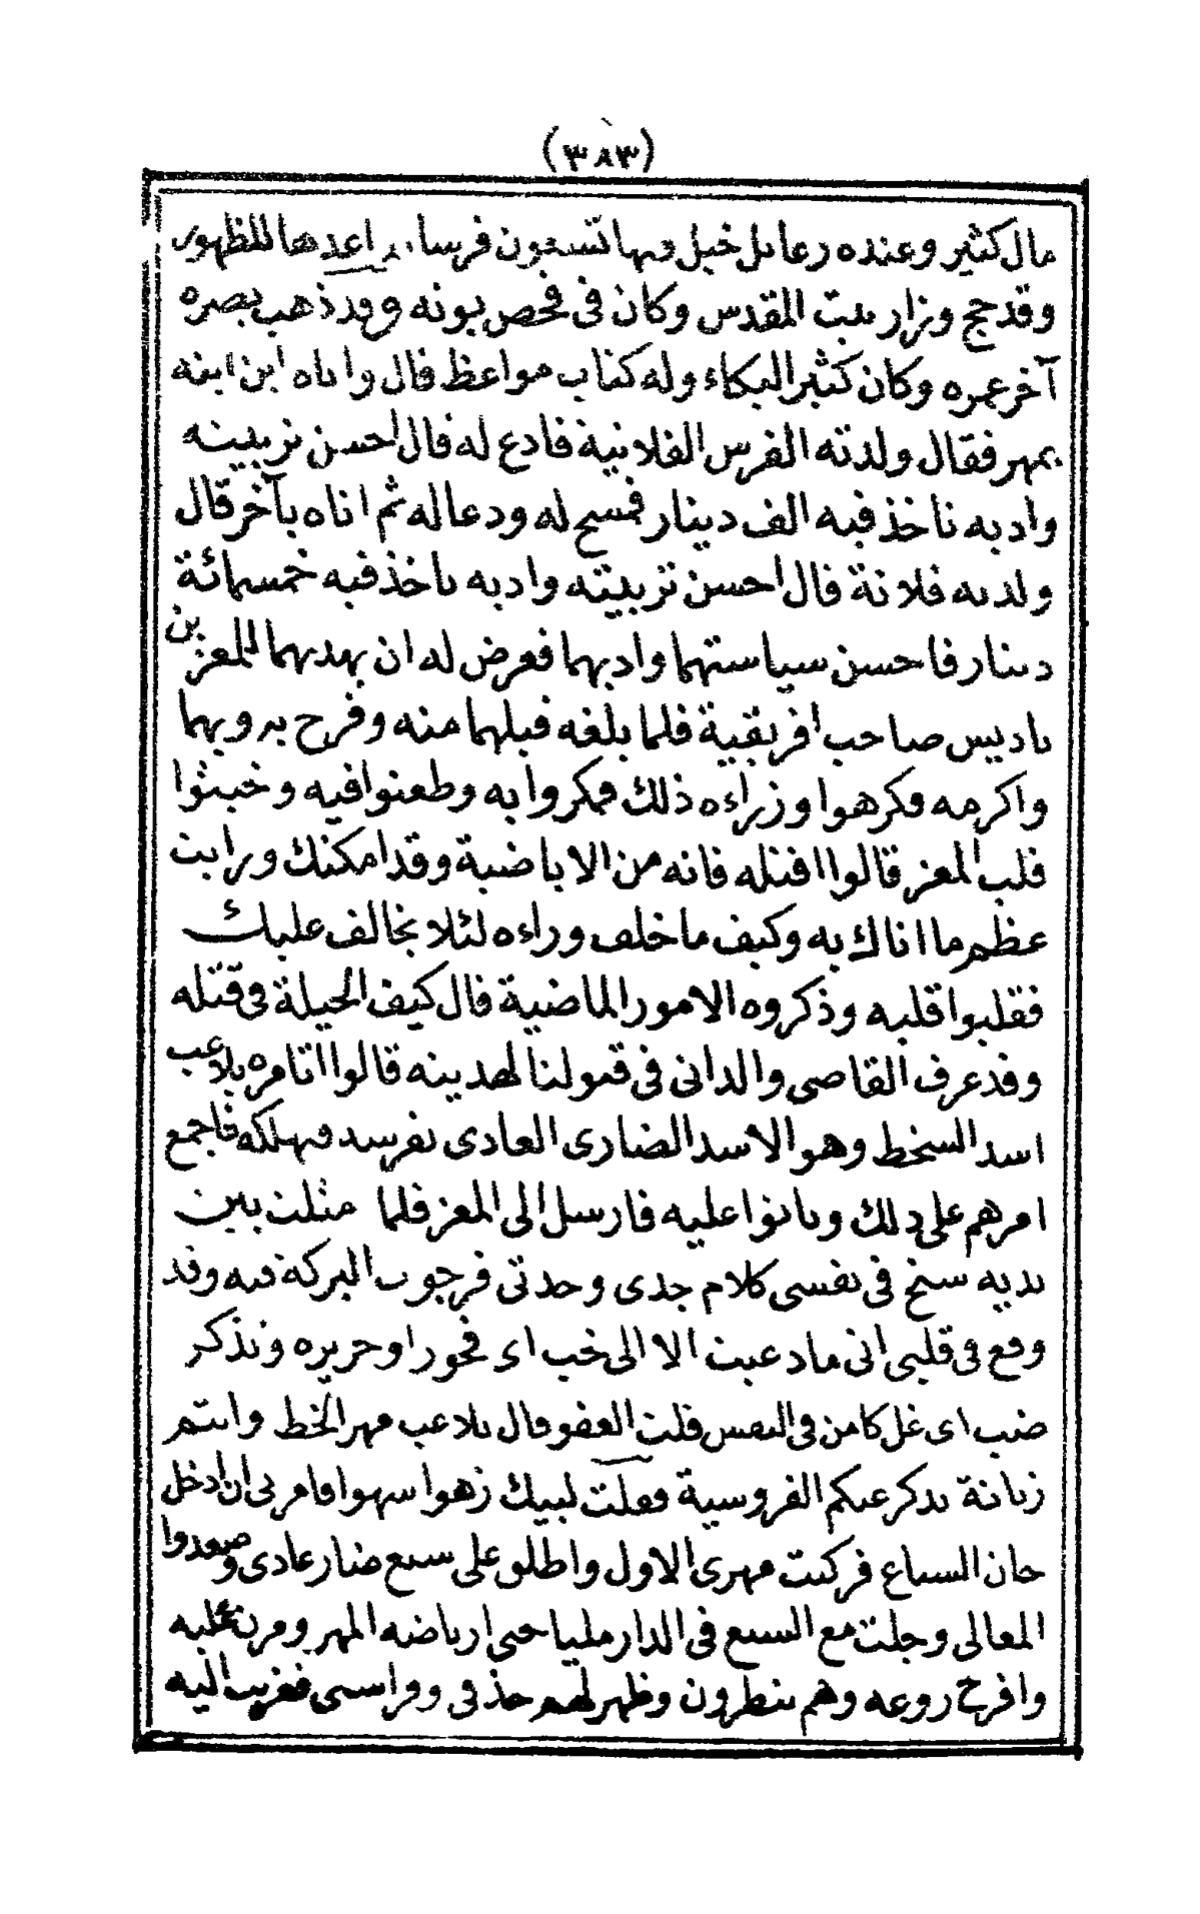 (٣٨٣)
مال كثير وعنده رعايل خيل وبها تسعون فرسا اعدها للظهور
وقد حج وزار بيت المقدس وكان في فحص بونه وقد ذهب بصره
آخر عمره وكان كثير البكاء وله كتاب مواعظ قال واتاه ابن ابنه
بمهر فقال ولدته الفرس الفلانية فادع له قال احسن تربيته
وادبه تاخذ فيه الف دينار فمسح له ودعا له ثم اتاه بآخر قال
ولدته فلانة قال احسن تربيته وادبه تاخذ فيه خمسمائة
دينار فاحسن سياستهما وادبهما فعرض له ان يهديهما للمعز بن
باديس صاحب افريقية فلما بلغه قبلهما منه وفرح به وبهما
واكرمه فكرهوا وزراءه ذلك فمكروا به وطعنوا فيه وخبثوا
قلب المعز قالوا اقتله فانه من الاباضية وقد امكنك ورايت
عظم ما اتاك به وكيف ما خلف وراءه لئلا يخالف عليك
فقلبوا قلبه وذكروه الامور الماضية قال كيف الحيلة في قتله
وقد عرف القاصي والداني في قبولنا لهدينه قالوا اتامره يلاعب
اسد السخط وهو الاسد الضارى العادى يفرسه فيهلكه فاجمع
امرهم على ذلك وباتوا عليه فارسل الى المعز فلما مثلت بين
يديه سنح في نفسي كلام جدى وحدتى فرجوت البركة فيه وقد
وقع في قلبي انى ما دعيت الا الى خب اى فجور او جريره وتذكر
ضب اى غل كامن في النفس قلت العفو قال تلاعب مهر الخط وانتم
زناتة تذكر عنكم الفروسية فقلت لبيك زهوا سهوا فامر بى ان ادخل
حان السباع فركبت مهرى الاول واطلق على سبع ضار عادى وصعدوا
المعالى وجلت مع السبع في الدار مليا حتى ارتاضه المهر ومرن عليه
وافرخ روعه وهم ينظرون وظهر لهم حذقى وفراستى فقربت اليه